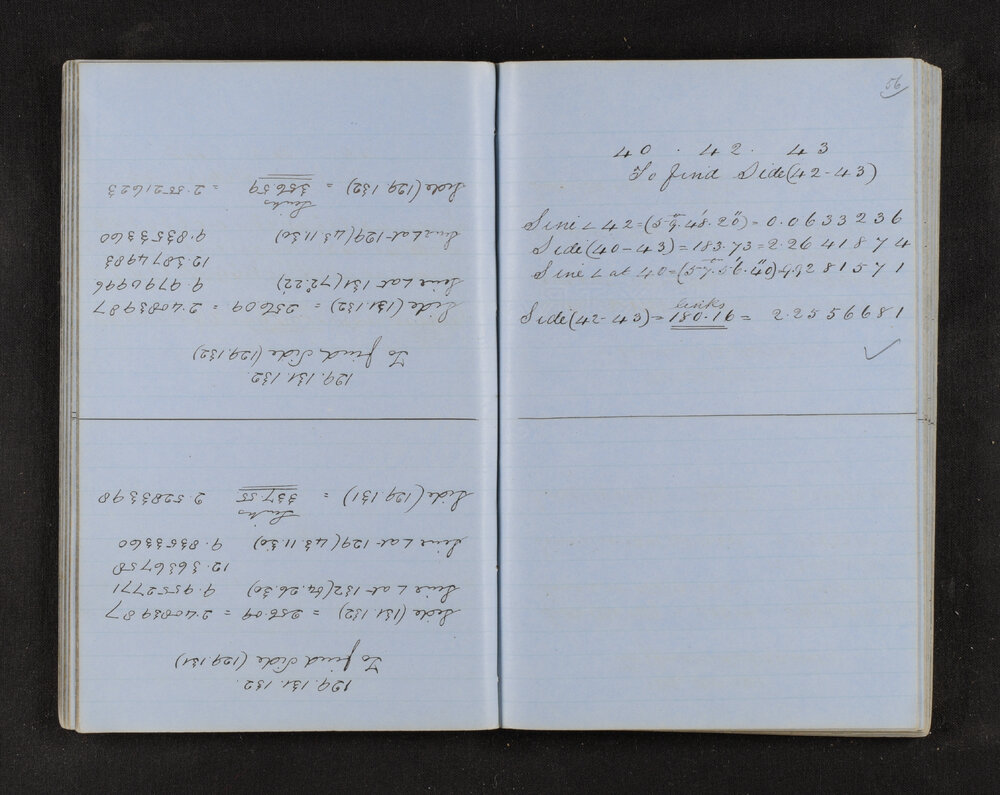 129.131.132.
To find Side (129.131)
Side (131.132) = 256.09 = 2.4083987
Sine L at 132 (64.26.30) 9.9552771
12.3636758
Sine L at 129 (43.11.30) 9.8353360
Links
Side (129.131) = 337.55 2.5283398
129.131.132.
To find Side (129.132)
Side (131.132) = 256.09 = 2.4083987
Sine L at 131 (72°22') 9.9790996
12.3874983
Sine L at 129 (43.11.30) 9.8353360
Links
Side (129.132) = 356.59 = 2.5521623
56
40 . 42 . 43
To find Side (42-43)
Sine < 42 = (59°.48'.20") = 0.0633236
Side (40-43) = 183.73 = 2.2641874
Sine < at 40 = (57°.56'.40") = 9.9281571
links
Side (42-43) = 180.16 = 2.2556681